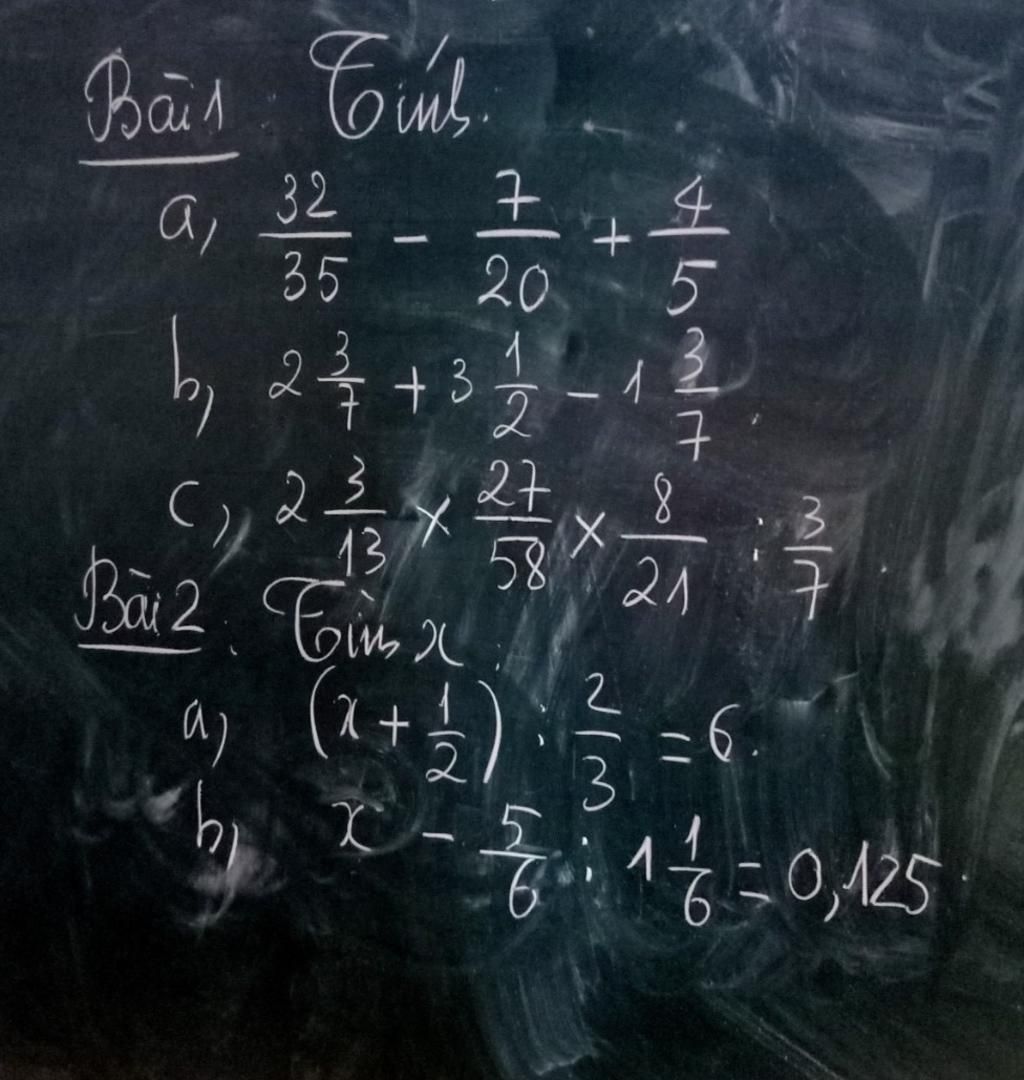 Bài 1 : Tính.
a, 32/35 - 7/20 + 4/5
b, 2 3/7 + 3 1/2 - 1 3/7.
c, 2 3/13 × 27/58 × 8/21 : 3/7.
Bài 2 : Tìm x :
a, (x + 1/2) : 2/3 = 6.
b, x - 5/6 : 1 1/6 = 0,125.